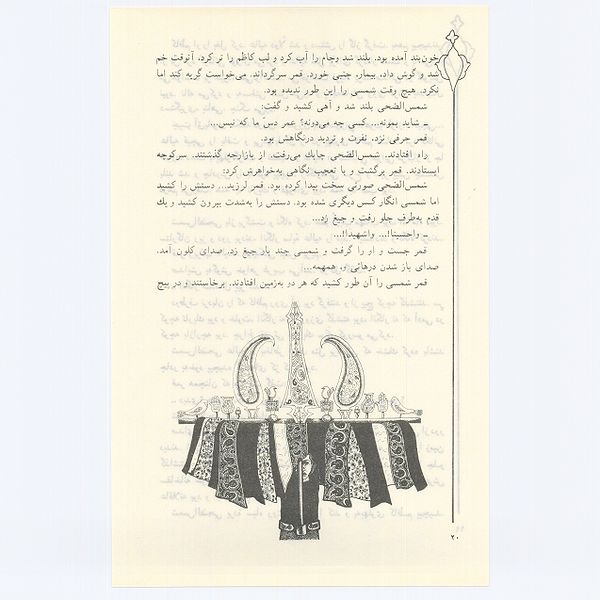 خون‌بند آمده بود. بلند شد وجام را آب کرد و لب کاظم را تر کرد، آنوقت خم
شد و گوش داد، بیمار، جنبی خورد. قمر سرگرداند. می‌خواست گریه کند اما
نکرد. هیچ رفت شمسی را این طور ندیده بود.
شمس‌الضحی بلند شد و آهی کشید و گفت:
ـ شاید بمونه... کسی چه می‌دونه؟ عمر دسّ ما که نیس...
قمر حرفی نزد. نفرت و تردید درنگاهش بود.
راه افتادند. شمس‌الضحی چابك می‌رفت. از بازارچه گذشتند. سرکوچه
ایستادند. قمر برگشت و با تعجب نگاهی به‌خواهرش کرد:
شمس‌الضحی صورتی سخت پیدا کرده بود. قمر لرزید... دستش را کشید
اما شمسی انگار کس دیگری شده بود. دستش را به‌شدت بیرون کشید و یك
قدم به‌طرف جلو رفت و جیغ زد...
ـ واحسینا!... واشهیدا!...
قمر جست و او را گرفت و شمسی چند بار جیغ زد. صدای کلون آمد.
صدای باز شدن درهائی و، همهمه...
قمر شمسی را آن طور کشید که هر دو به‌زمین افتادند. برخاستند و در پیچ
۲۰